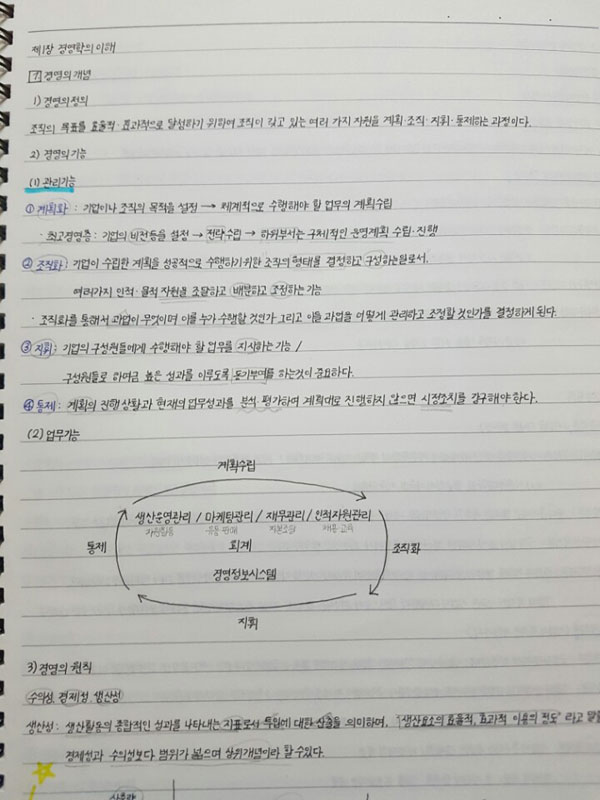 제1장 경영학의 이해
1 경영의 개념
1) 경영의 정의
조직의 목표를 효율적·효과적으로 달성하기 위하여 조직이 갖고 있는 여러 가지 자원을 계획·조직·지휘·통제하는 과정이다.
2) 경영의 기능
(1) 관리기능
① 계획화 : 기업이나 조직의 목적을 설정 → 체계적으로 수행해야 할 업무의 계획수립
· 최고경영층 : 기업의 비전등을 설정 → 전략수립 → 하위부서는 구체적인 운영계획 수립·진행
② 조직화 : 기업이 수립한 계획을 성공적으로 수행하기위한 조직의 형태를 결정하고 구성하는일로서,
여러가지 인적·물적 자원을 조달하고 배분하고 조정하는 기능
· 조직화를 통해서 과업이 무엇이며 이를 누가 수행할 것인가 그리고 이들 과업을 어떻게 관리하고 조정할 것인가를 결정하게 된다.
③ 지휘 : 기업의 구성원들에게 수행해야 할 업무를 지시하는 기능 /
구성원들로 하여금 높은 성과를 이루도록 동기부여를 하는것이 중요하다.
④ 통제 : 계획의 진행상황과 현재의 업무성과를 분석·평가하여 계획대로 진행하지 않으면 시정조치를 강구해야 한다.
(2) 업무기능
계획수립
생산운영관리 / 마케팅관리 / 재무관리 / 인적자원관리
자원활동 유통·판매 자본조달 채용·교육
통제 회계 조직화
경영정보시스템
지휘
3) 경영의 원칙
수익성, 경제성, 생산성
생산성 : 생산활동의 종합적인 성과를 나타내는 지표로서 투입에 대한 산출을 의미하며, "생산요소의 효율적, 효과적 이용의 정도" 라고 말할
경제성과 수익성보다 범위가 넓으며 상위개념이라 할 수 있다.
산출량